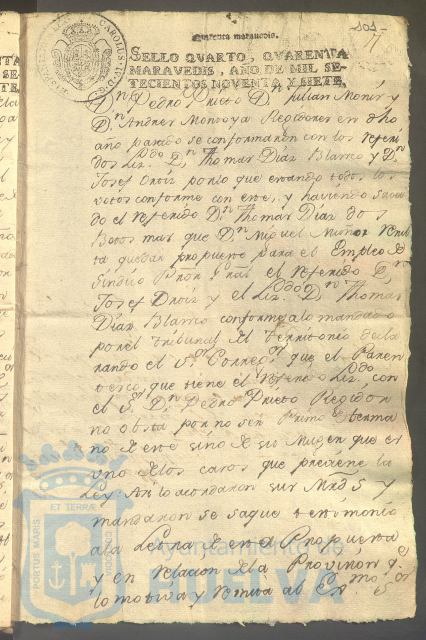 Quarenta maravedis.
SELLO QVARTO, QVARENTA
MARAVEDIS, AÑO DE MIL SE-
TECIENTOS NOVENTA Y SIETE.
Dn. Pedro Prieto Dn. Julian Monis y
Dn. Andres Montoya Regidores en dho
año pasado se conformaron con los referi
dos Lizdo. Dn. Thomas Diaz Blanco y Dn.
Josef Ortiz por lo que estando todos los
votos conforme con este, y haviendo saca
do el referido Dn. Thomas Diaz dos
Botos mas que Dn. Miguel Muñoz resul
ta quedar propuesto para el Empleo de
Sindico el referido Dn.
Josef Ortiz y el Lizdo. Dn. Thomas
Diaz Blanco conforme a lo mandado
por el tribunal del territorio decla
rando el Sor. Corregor. que el Paren
tesco que tiene el referido Lizdo. con
el Sr. Dn. Pedro Prieto Regidor
no obsta por no ser Primo Herma
no de este sino de su Muger que es
uno de los casos que previene la
Ley: Asi lo acordaron sus Mrds. y
mandaron se saque testimonio
a la Letra de en el Propuesta
y en relacion de la Provision qe.
lo motiva y remita al Exmo. Sor
CAROLUS IV D. G.
PORTUS MARIS ET TERRAE CUSTODIA
Ayuntamiento de
HUELVA